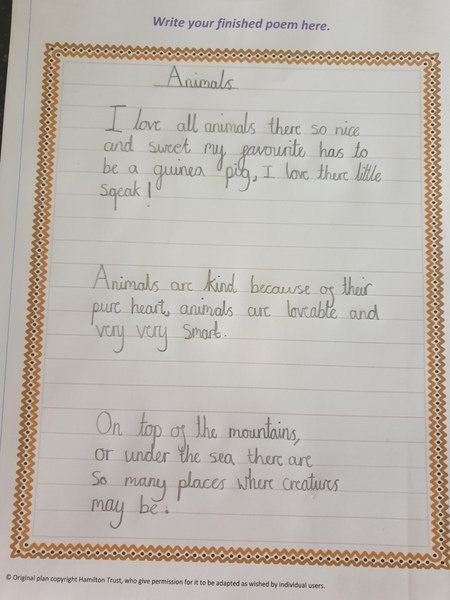 Write your finished poem here.
Animals
I love all animals there so nice
and sweet my favourite has to
be a guinea pig, I love there little
sqeak!
Animals are kind because of their
pure heart, animals are loveable and
very very smart.
On top of the mountains,
or under the sea there are
So many places where creatures
may be.
© Original plan copyright Hamilton Trust, who give permission for it to be adapted as wished by individual users.